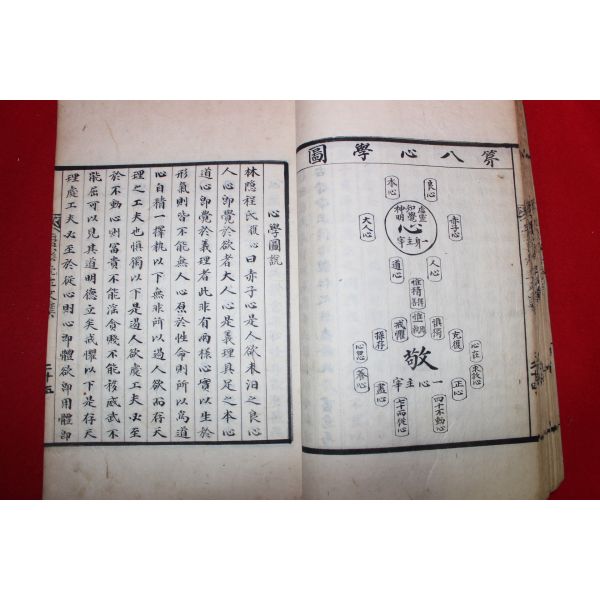 第八心學圖
良心
本心
虛靈
知覺
神明
心
一身主宰
赤子心
大人心
人心
道心
惟精
擇善
惟一
固執
慎獨
戒懼
克復
操存
心在
心思
敬
一心主宰
求放心
養心
正心
盡心
四十不動心
七十而從心
心學圖說
林隱程氏復心曰赤子心是人欲未汨之良心
人心即覺於欲者大人心是義理具足之本心
道心即覺於義理者此非有兩樣心實以生於
形氣則皆不能無人心原於性命則所以為道
心自精一擇執以下無非所以遏人欲而存天
理之工夫也慎獨以下是遏人欲處工夫必至
於不動心則富貴不能淫貧賤不能移威武不
能屈可以見其道明德立矣戒懼以下是存天
理處工夫必至於從心則心即體欲即用體即
二十五